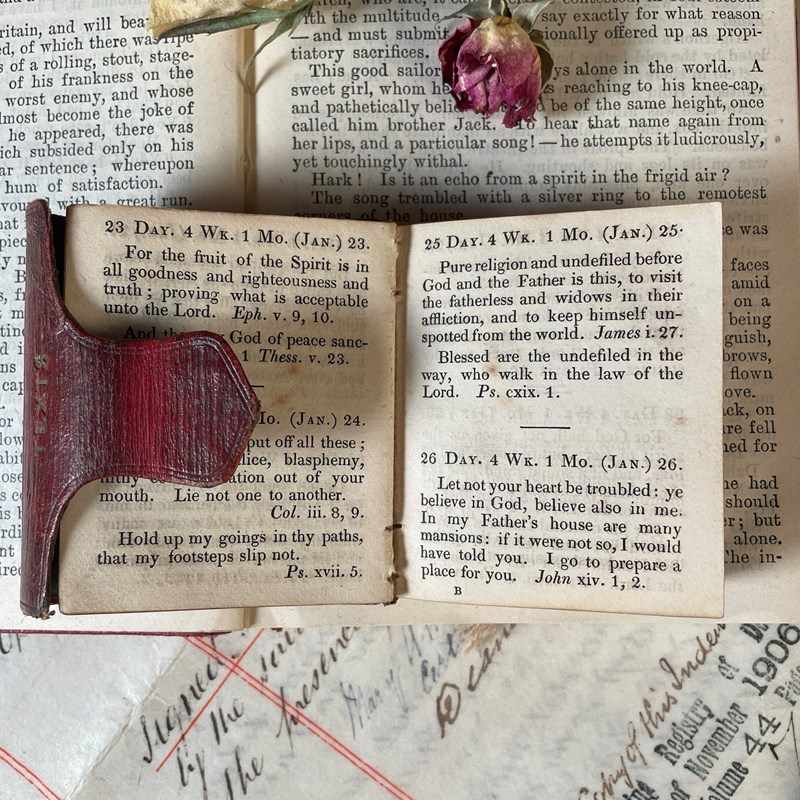 ritain, and will bea-
ed, of which there was ripe
s of a rolling, stout, stage-
of his frankness on the
worst enemy, and whose
lmost become the joke of
he appeared, there was
ich subsided only on his
ar sentence; whereupon
hum of satisfaction.
with a great run.
ith the multitude say exactly for what reason
—and must submit sionally offered up as propi-
tiatory sacrifices.
This good sailor ys alone in the world. A
sweet girl, whom he reaching to his knee-cap,
and pathetically beli d be of the same height, once
called him brother Jack. To hear that name again from
her lips, and a particular song!—he attempts it ludicrously,
yet touchingly withal.
Hark! Is it an echo from a spirit in the frigid air?
The song trembled with a silver ring to the remotest
corners of the house.
23 Day. 4 Wk. 1 Mo. (Jan.) 23.
For the fruit of the Spirit is in
all goodness and righteousness and
truth; proving what is acceptable
unto the Lord. Eph. v. 9, 10.
And the God of peace sanc-
1 Thess. v. 23.
Mo. (Jan.) 24.
put off all these;
lice, blasphemy,
ation out of your
mouth. Lie not one to another.
Col. iii. 8, 9.
Hold up my goings in thy paths,
that my footsteps slip not.
Ps. xvii. 5.
25 Day. 4 Wk. 1 Mo. (Jan.) 25.
Pure religion and undefiled before
God and the Father is this, to visit
the fatherless and widows in their
affliction, and to keep himself un-
spotted from the world. James i. 27.
Blessed are the undefiled in the
way, who walk in the law of the
Lord. Ps. cxix. 1.
26 Day. 4 Wk. 1 Mo. (Jan.) 26.
Let not your heart be troubled: ye
believe in God, believe also in me.
In my Father's house are many
mansions: if it were not so, I would
have told you. I go to prepare a
place for you. John xiv. 1, 2.
B
ce was
faces
amid
on a
being
guish,
brows,
flown
ove.
ck, on
re fell
ned for
he had
should
er; but
alone.
The in-
Signed
by the said
the presence
Copy of this Inden
Registry of
of November 1906
olume 44 Page